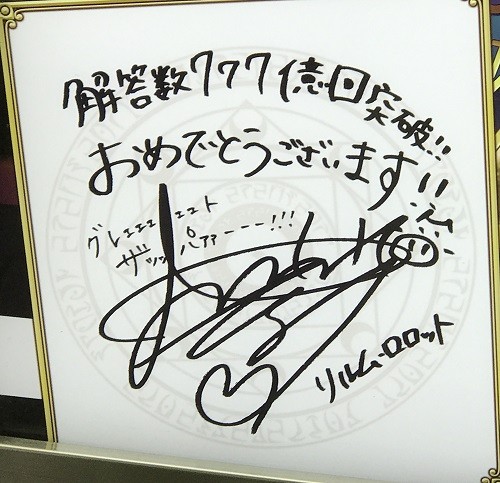 解答数777億回突破!!
おめでとうございます!!
グレェェェェェェト
ザッッパァァーーー!!!
リルム・ロロット